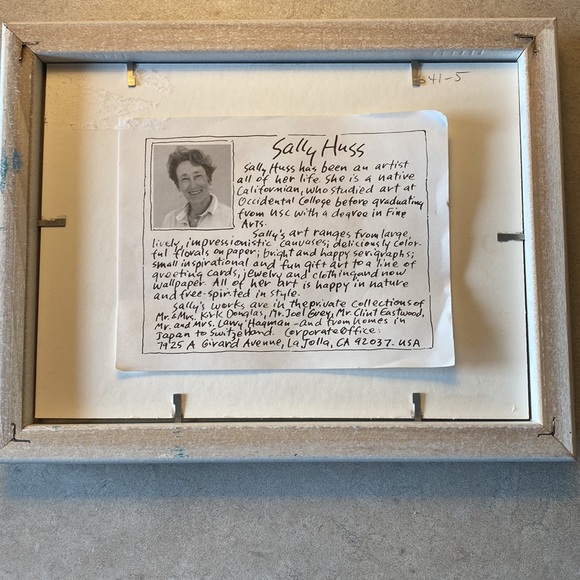 41-5
Sally Huss
Sally Huss has been an artist
all of her life. She is a native
Californian, who studied art at
Occidental College before graduating
from USC with a degree in Fine
Arts.
Sally's art ranges from large,
lively, impressionistic canvases; deliciously color-
ful florals on paper; bright and happy serigraphs;
small inspirational and fun gift art to a line of
greeting cards, jewelry and clothing and now
wallpaper. All of her art is happy in nature
and free-spirited in style.
Sally's works are in the private collections of
Mr. & Mrs. Kirk Douglas, Mr. Joel Grey, Mr. Clint Eastwood,
Mr. and Mrs. Larry Hagman - and from homes in
Japan to Switzerland. Corporate Office:
7925 A Girard Avenue, La Jolla, CA 92037. USA